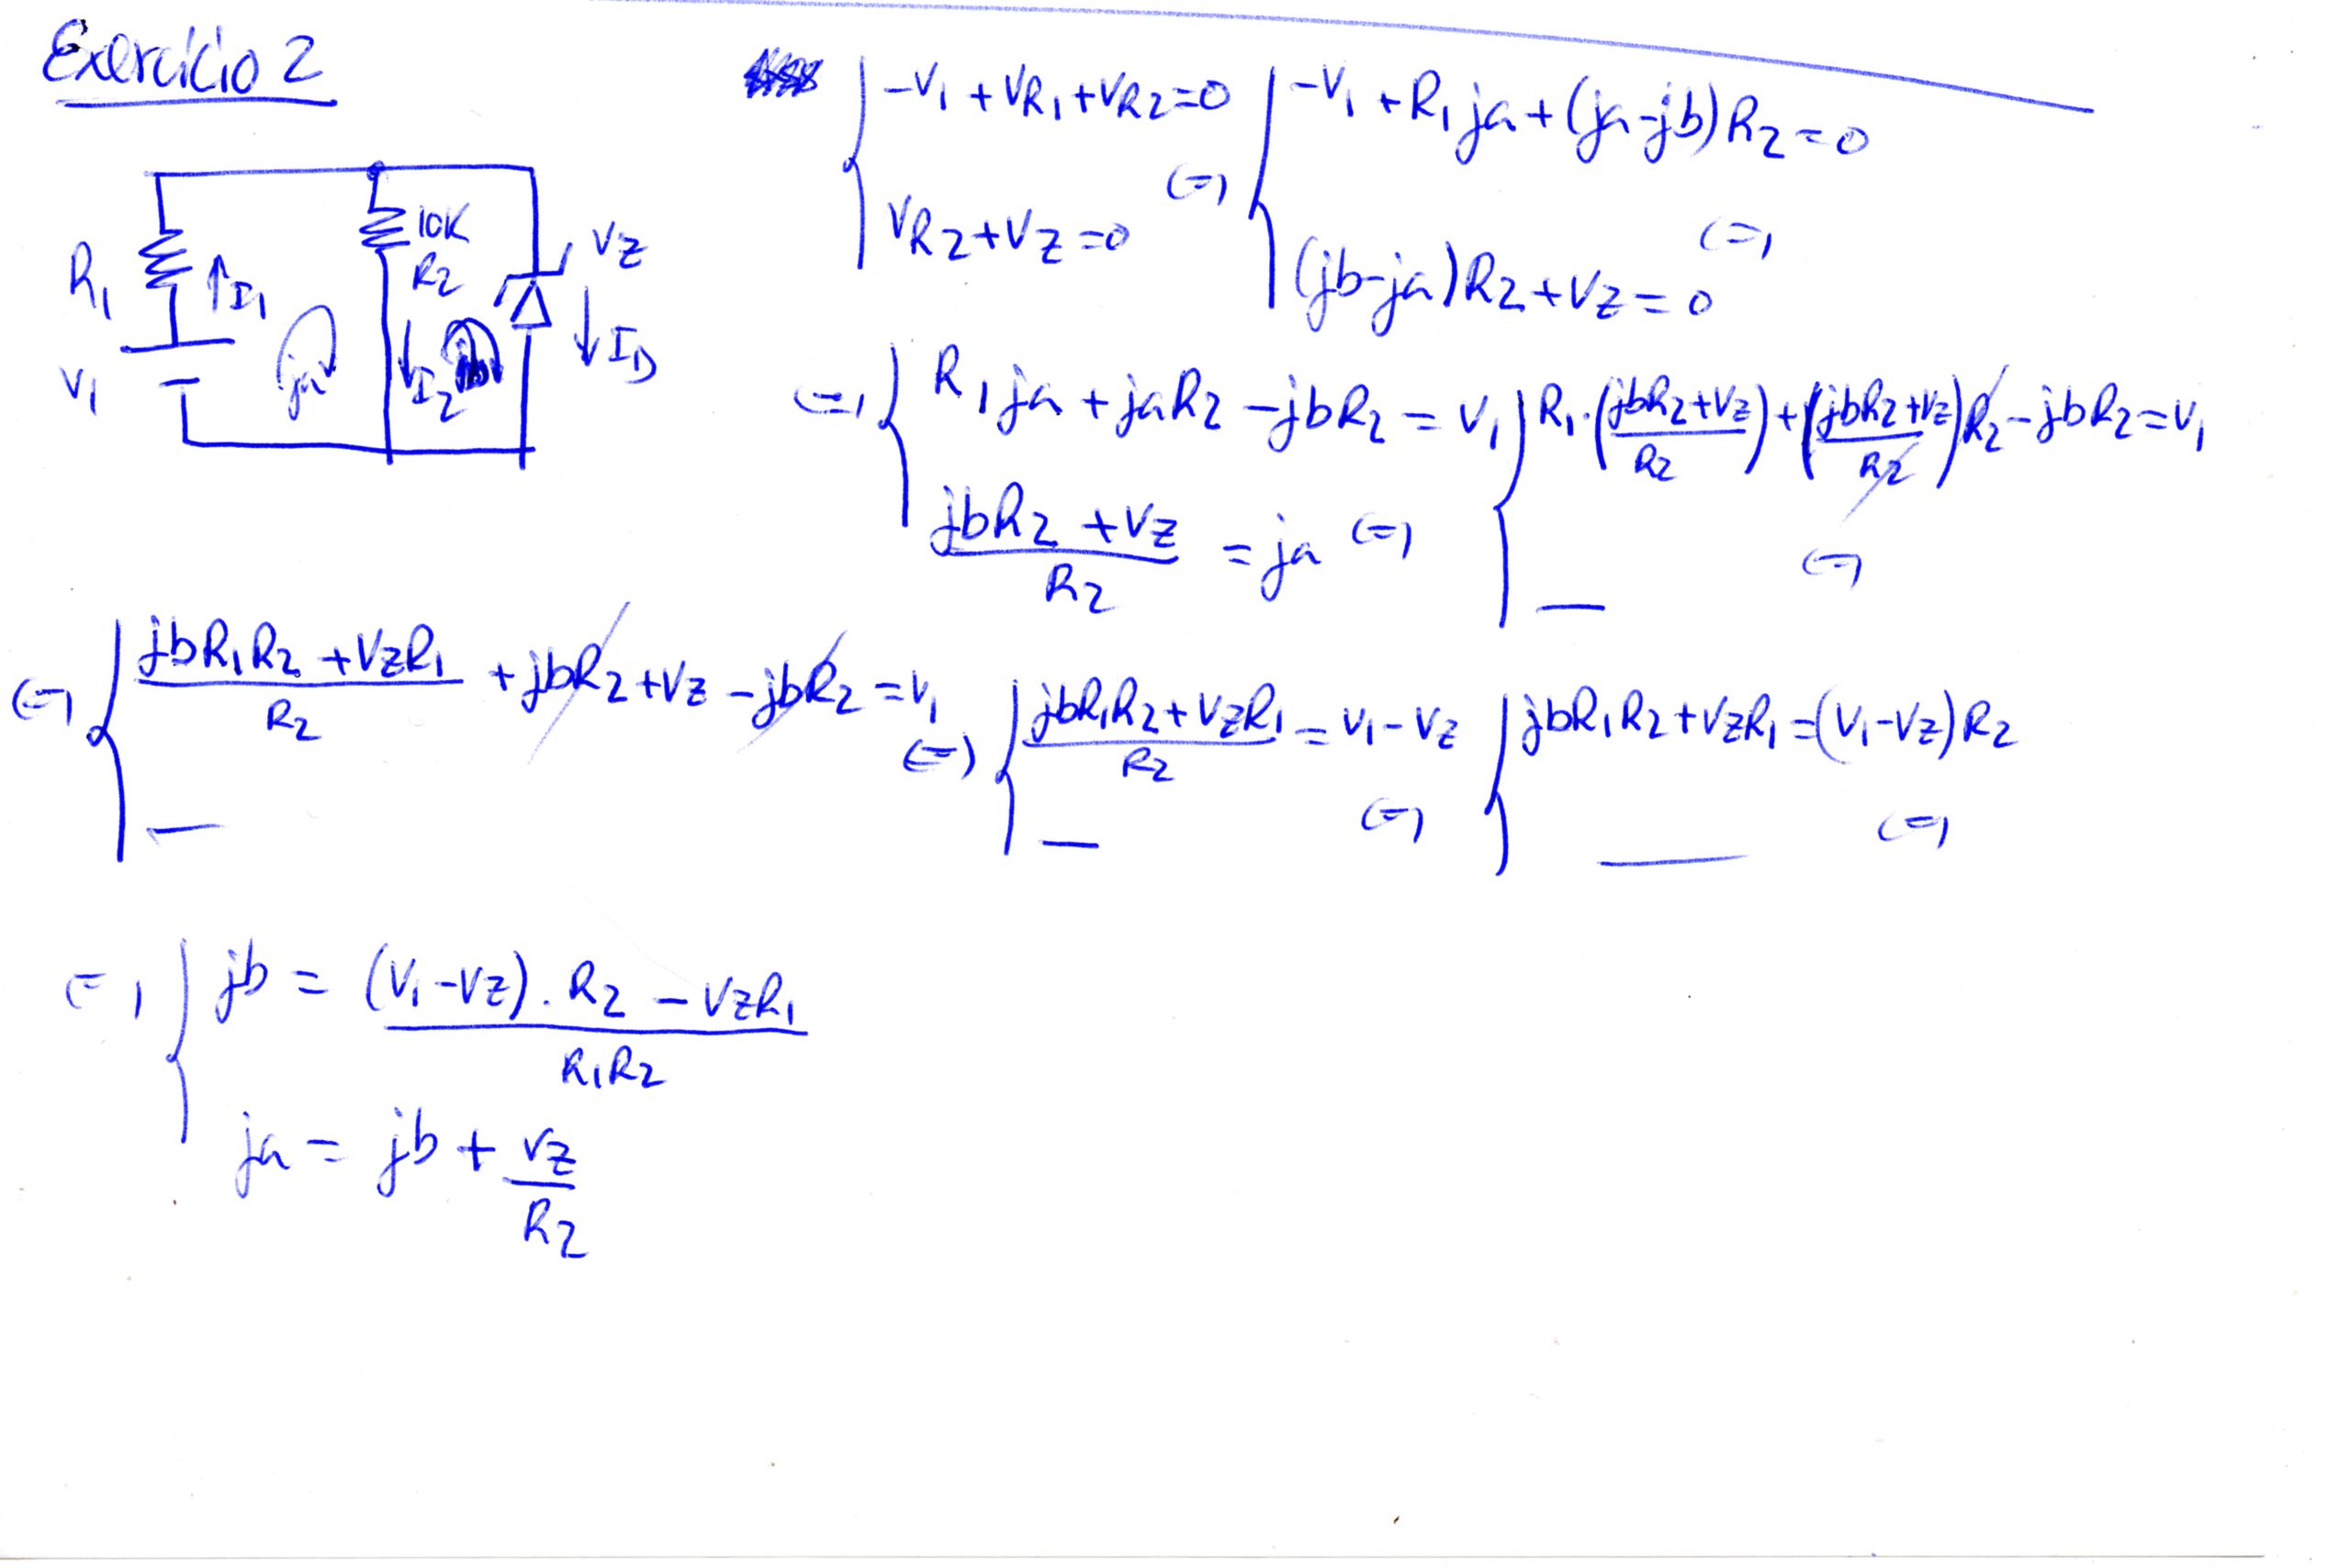 Exercício 2
R1
I1
V1
ja
10K
R2
I2
jb
VZ
ID
{ -V1 + VR1 + VR2 = 0
VR2 + VZ = 0
(=) { -V1 + R1 ja + (ja-jb) R2 = 0
(jb-ja) R2 + VZ = 0 (=)
(=) { R1 ja + jaR2 - jbR2 = V1
(jbR2 + VZ) / R2 = ja (=)
{ R1 · ((jbR2+VZ) / R2) + ((jbR2+VZ) / R2) R2 - jbR2 = V1
— (=)
(=) { (jbR1R2 + VZR1) / R2 + jbR2 + VZ - jbR2 = V1
—
(=) { (jbR1R2 + VZR1) / R2 = V1 - VZ
— (=)
{ jbR1R2 + VZR1 = (V1-VZ) R2
— (=)
(=) { jb = ((V1-VZ) . R2 - VZR1) / R1R2
ja = jb + VZ / R2